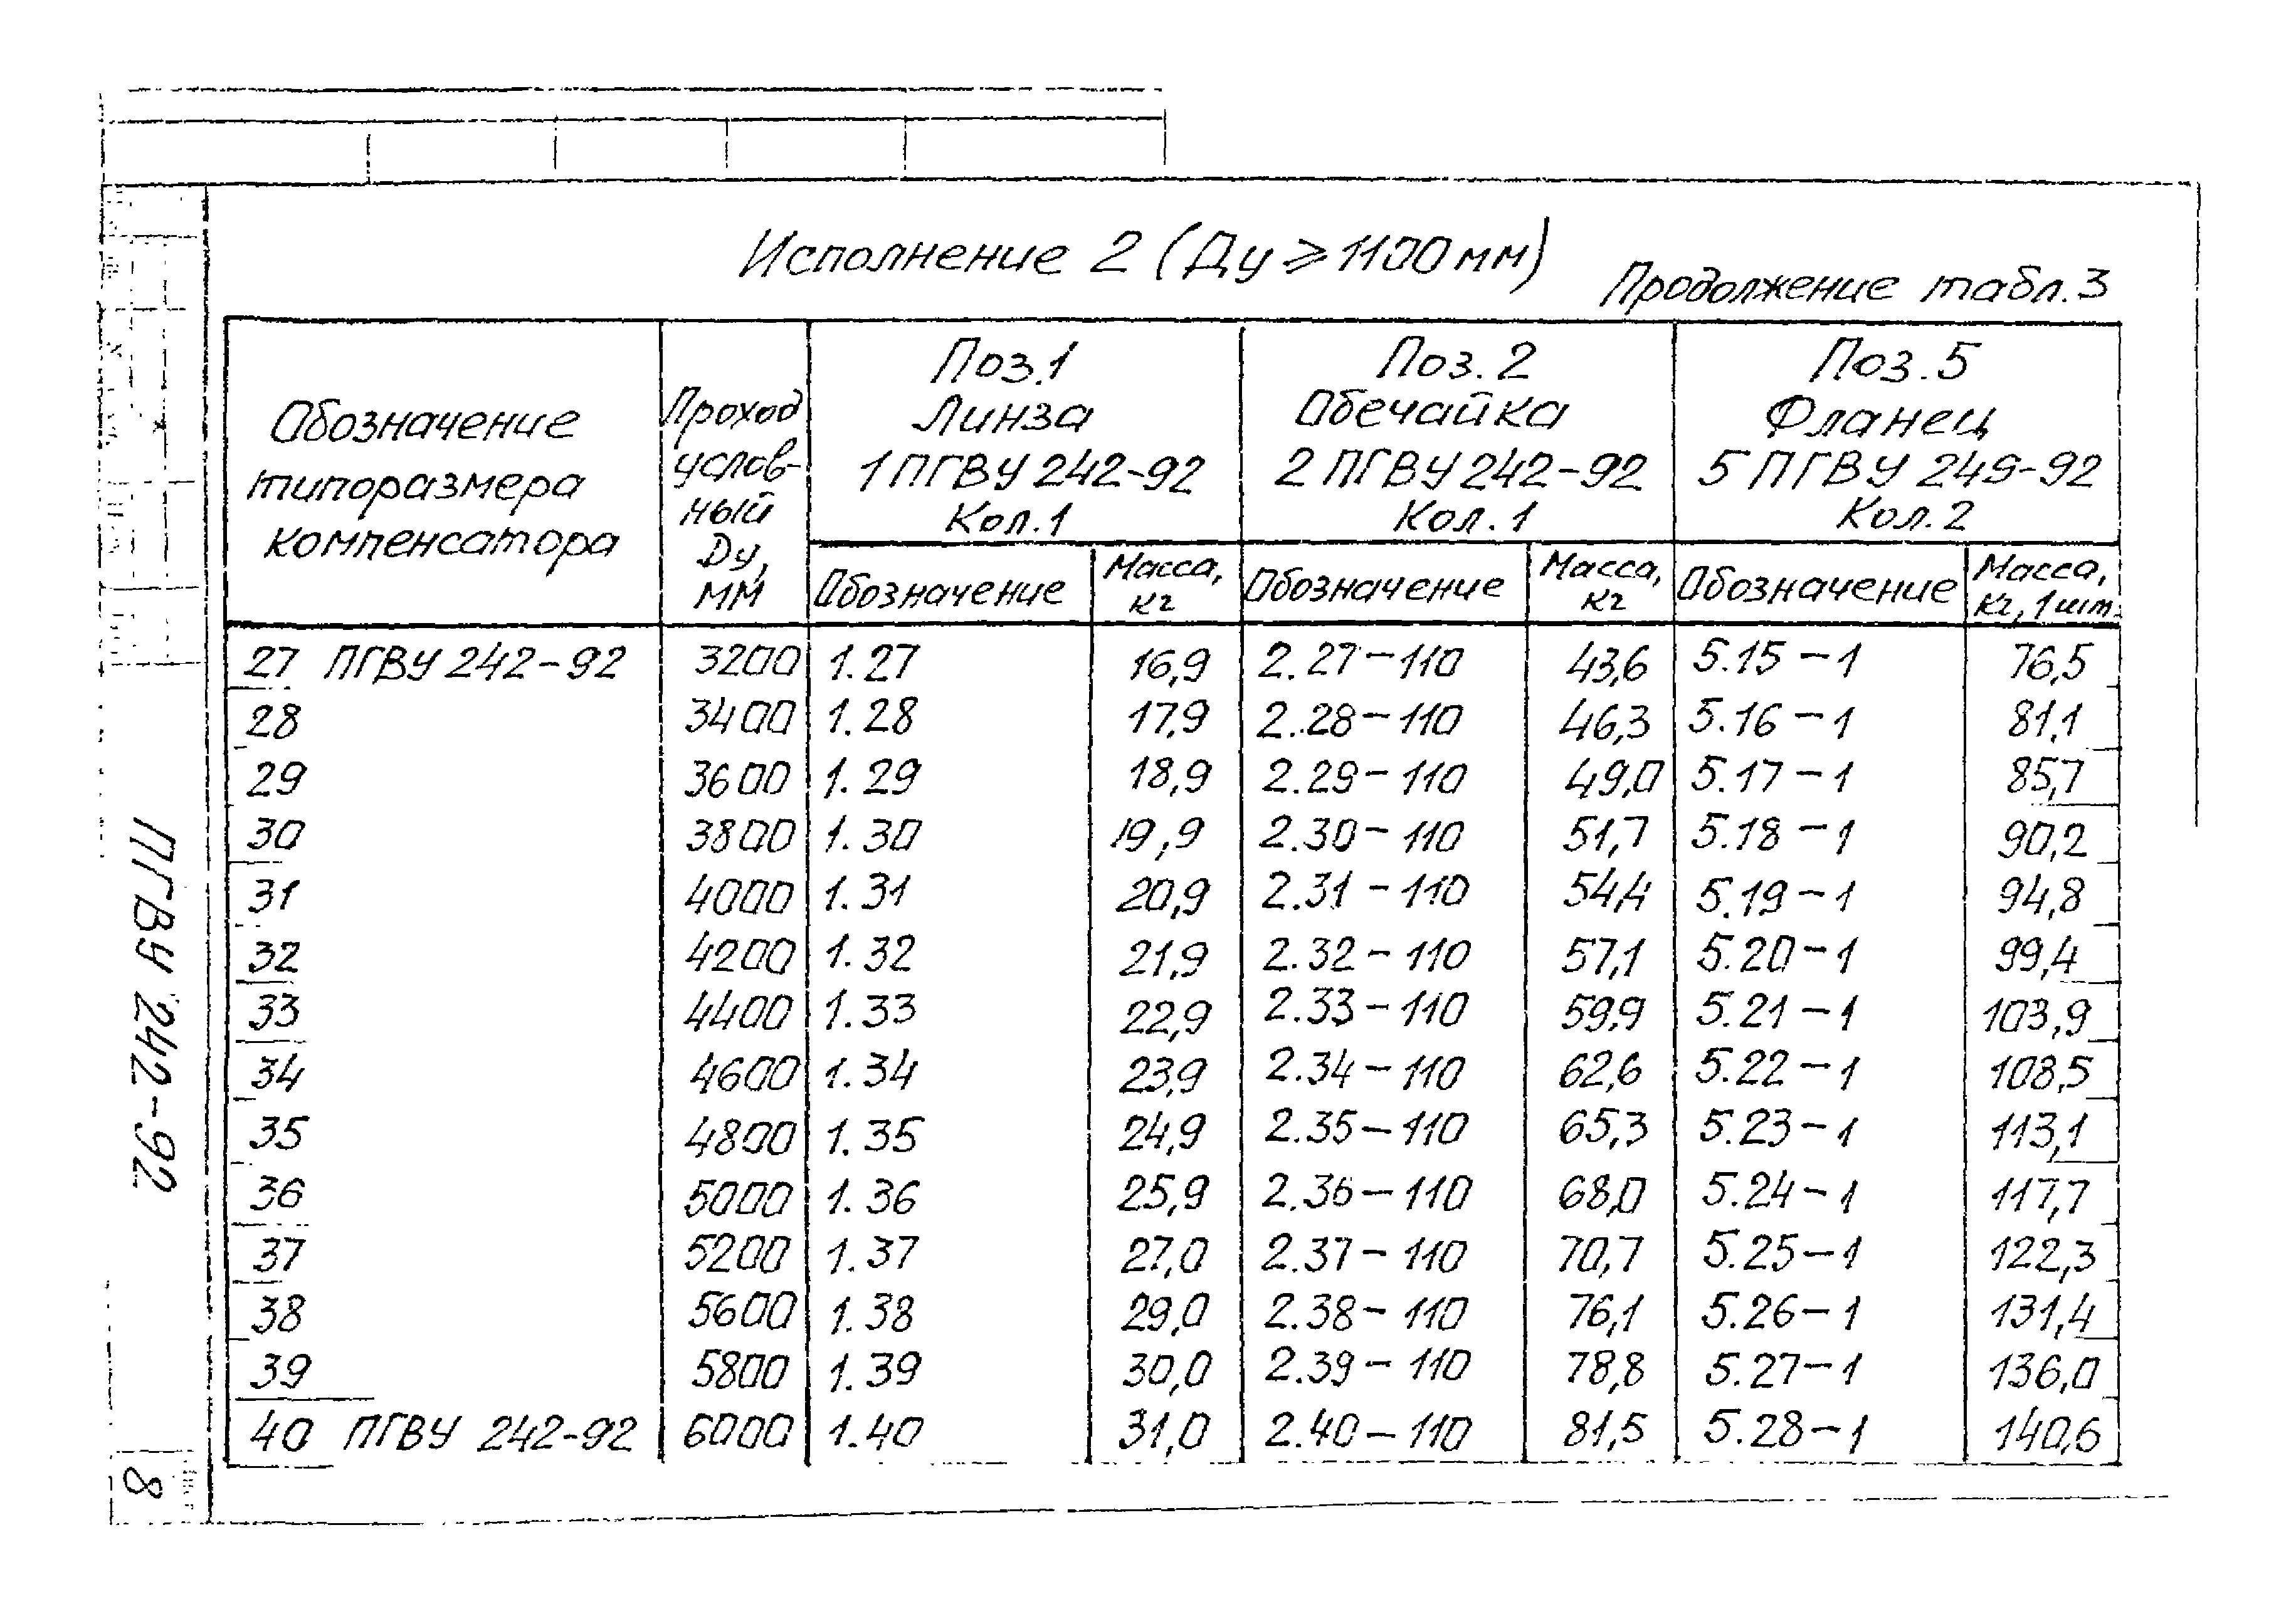 Исполнение 2 (Ду ⩾ 1100 мм)
Продолжение табл. 3
Обозначение
типоразмера
компенсатора
Проход
услов-
ный
Ду,
мм
Поз. 1
Линза
1 ПГВУ 242-92
Кол. 1
Поз. 2
Обечайка
2 ПГВУ 242-92
Кол. 1
Поз. 5
Фланец
5 ПГВУ 245-92
Кол. 2
Обозначение Масса, кг Обозначение Масса, кг Обозначение Масса, кг, 1 шт.
27 ПГВУ 242-92 3200 1.27 16,9 2.27-110 43,6 5.15-1 76,5
28 3400 1.28 17,9 2.28-110 46,3 5.16-1 81,1
29 3600 1.29 18,9 2.29-110 49,0 5.17-1 85,7
30 3800 1.30 19,9 2.30-110 51,7 5.18-1 90,2
31 4000 1.31 20,9 2.31-110 54,4 5.19-1 94,8
32 4200 1.32 21,9 2.32-110 57,1 5.20-1 99,4
33 4400 1.33 22,9 2.33-110 59,9 5.21-1 103,9
34 4600 1.34 23,9 2.34-110 62,6 5.22-1 108,5
35 4800 1.35 24,9 2.35-110 65,3 5.23-1 113,1
36 5000 1.36 25,9 2.36-110 68,0 5.24-1 117,7
37 5200 1.37 27,0 2.37-110 70,7 5.25-1 122,3
38 5600 1.38 29,0 2.38-110 76,1 5.26-1 131,4
39 5800 1.39 30,0 2.39-110 78,8 5.27-1 136,0
40 ПГВУ 242-92 6000 1.40 31,0 2.40-110 81,5 5.28-1 140,6
ПГВУ 242-92
8